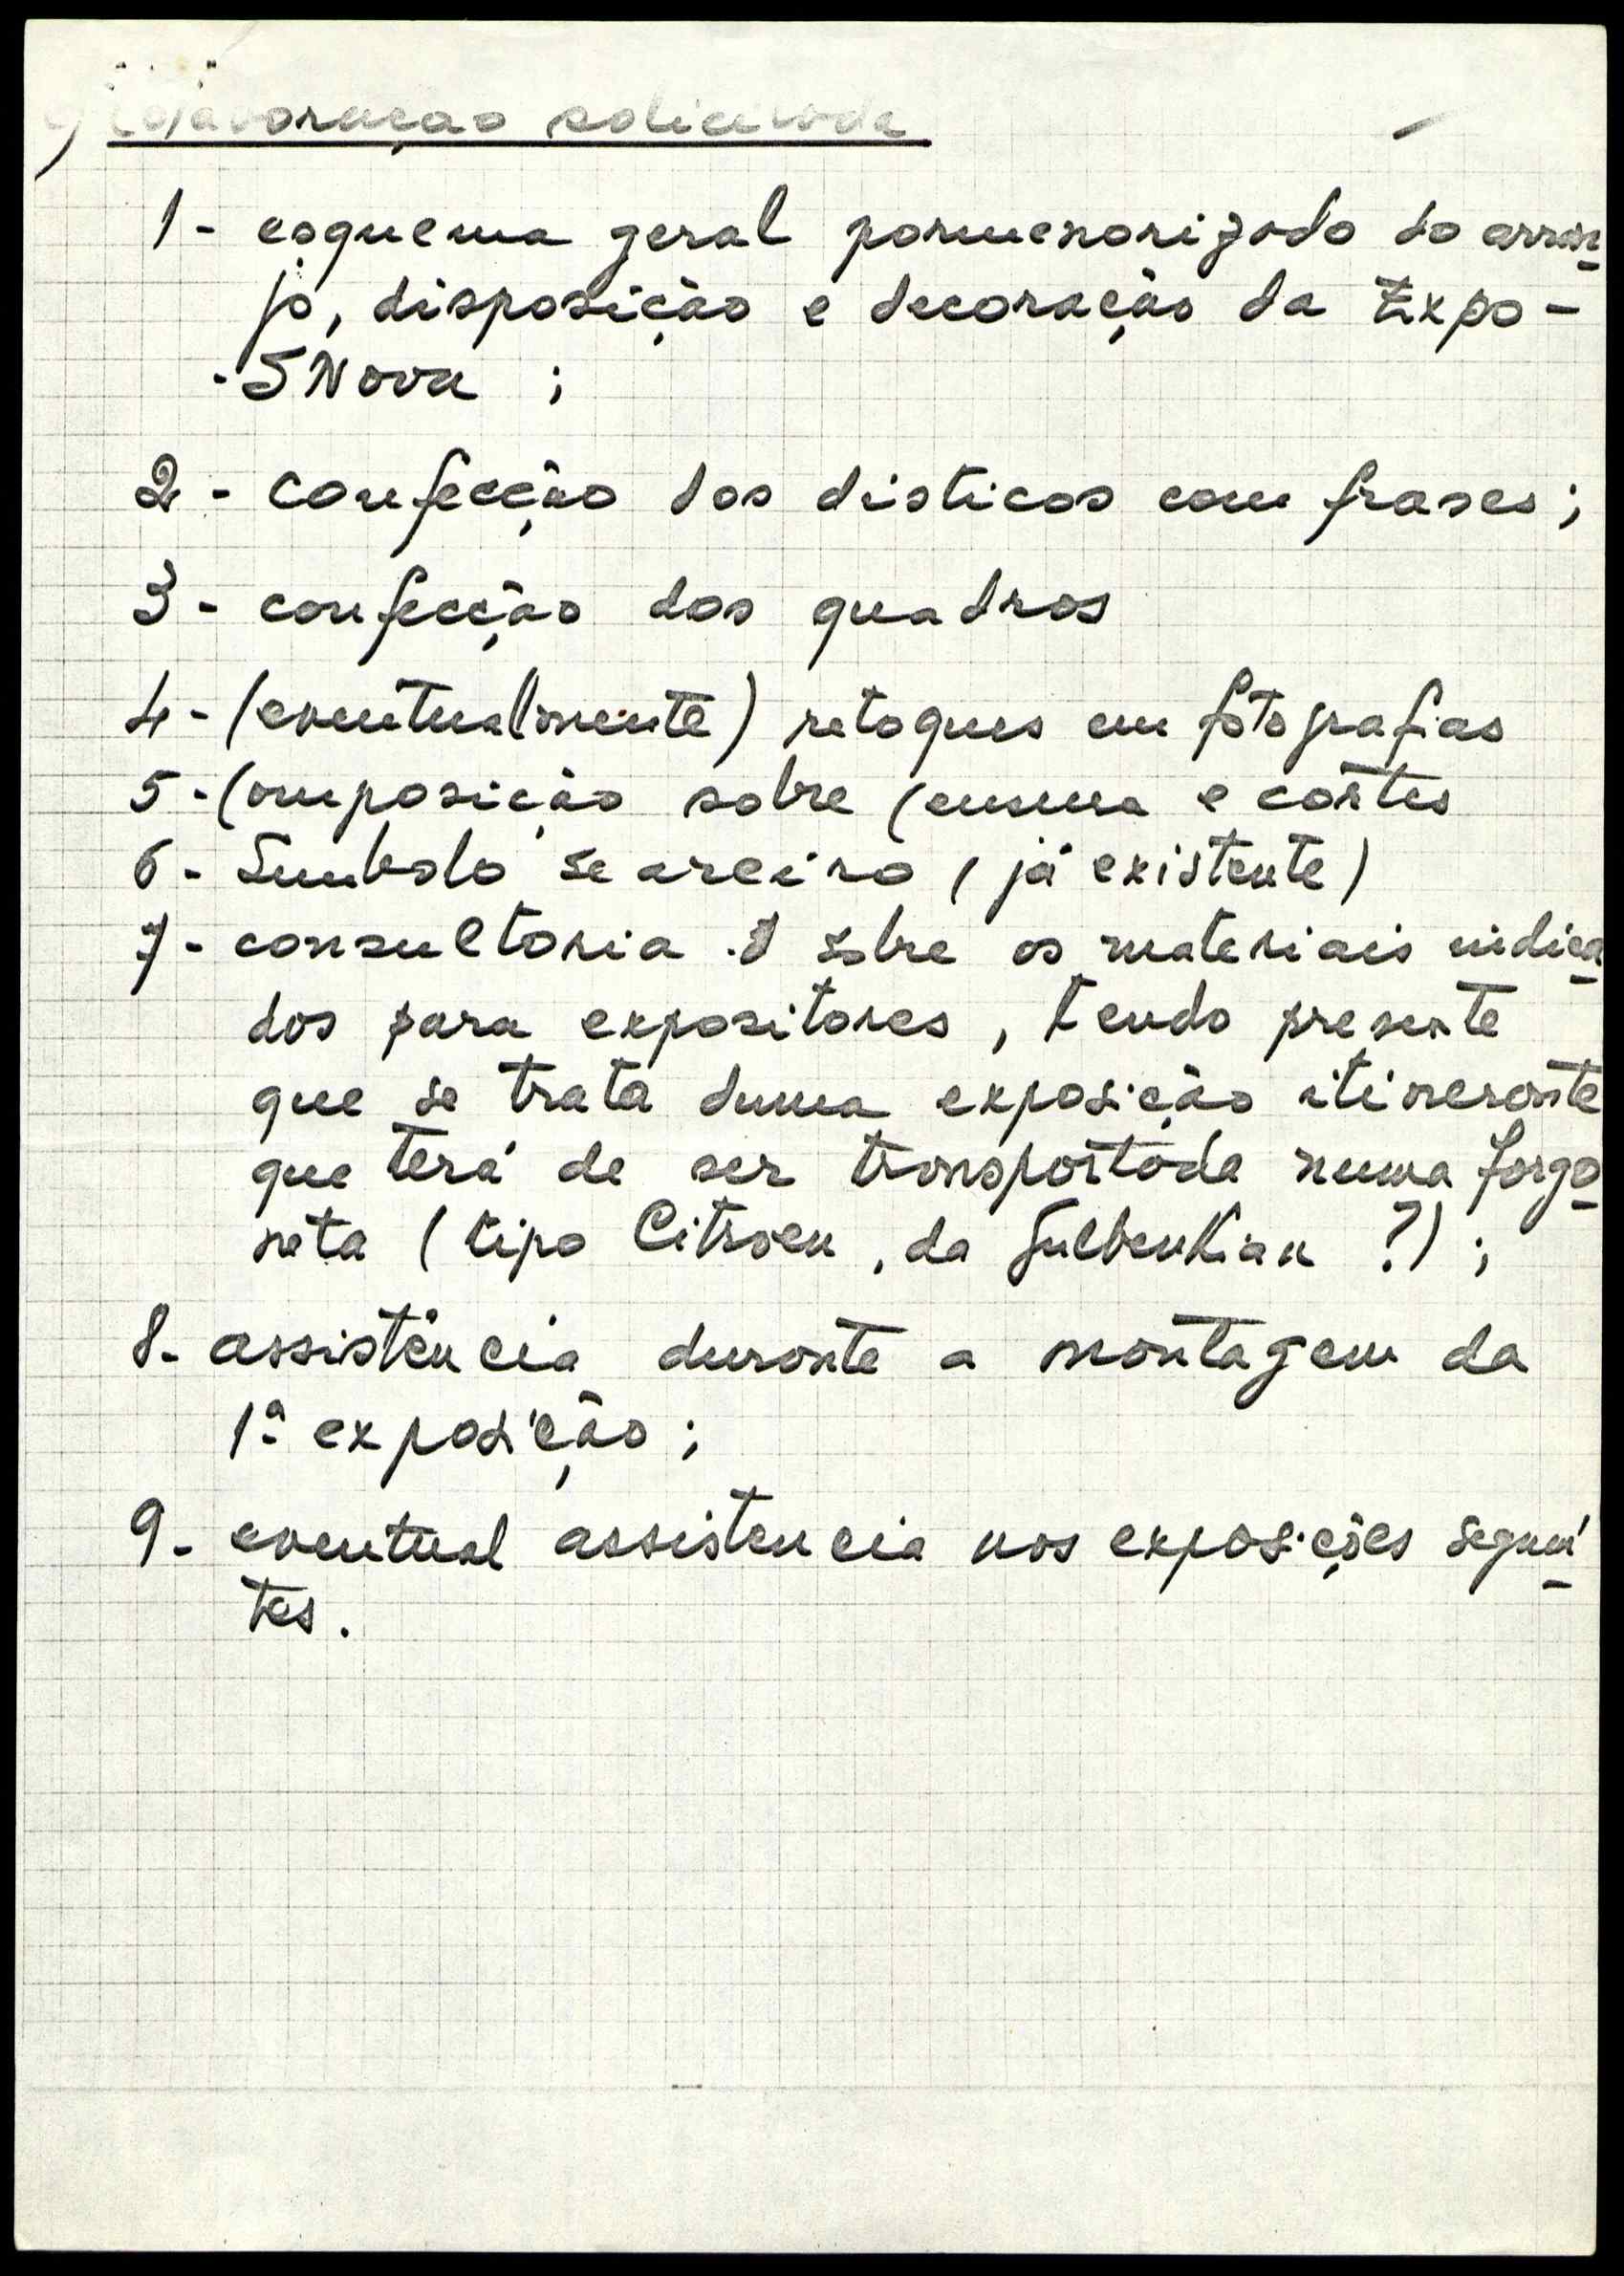 Colaboração solicitada
1 - esquema geral pormenorizado do arran
jo, disposição e decoração da Expo -
- SNova ;
2 - confecção dos disticos com frases ;
3 - confecção dos quadros
4 - (eventualmente) retoques em fotografias
5 - Composição sobre Censura e côrtes
6 - Simbolo seareiro (já existente)
7 - consultoria sobre os materiais indica
dos para expositores, tendo presente
que se trata duma exposição itinerante
que terá de ser transportada numa forgo
neta (tipo Citroen, da Gulbenkian ?) ;
8 - assistência durante a montagem da
1ª exposição ;
9 - eventual assistencia nos exposições seguin
tes.